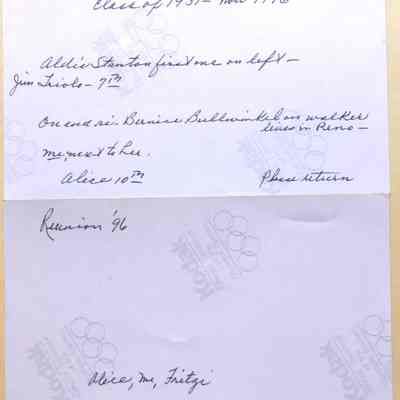 Class of 1931 - Nov 1996
Aldie Stanton first one on left -
Jim Triolo - 7th
On end is Bernice Bullwinkel on walker
lives in Reno -
me, next to her.
Alice 10th Please return
Reunion '96
Alice, Me, Fritzi
Kodak
Kodak
Kodak